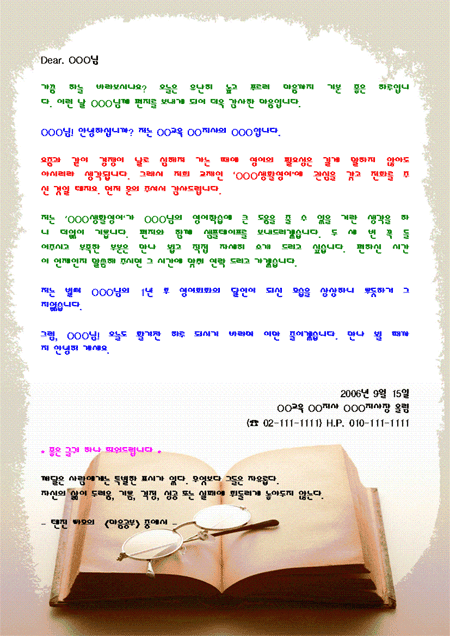 Dear. OOO님
가끔 하늘 바라보시나요? 오늘은 유난히 높고 푸르러 마음까지 기분 좋은 하루입니
다. 이런 날 OOO님께 편지를 보내게 되어 더욱 감사한 마음입니다.
OOO님! 안녕하십니까? 저는 OO교육 OO지사의 OOO입니다.
요즘과 같이 경쟁이 날로 심하져 가는 때에 영어의 필요성은 길게 말하지 않아도
아시리라 생각됩니다. 그래서 저희 교재인 'OOO생활영어'에 관심을 갖고 전화를 주
신 것일 테지요. 먼저 문의 주셔서 감사드립니다.
저는 'OOO생활영어'가 OOO님의 영어학습에 큰 도움을 줄 수 있을 거란 생각을 하
니 더없이 기쁩니다. 편지와 함께 샘플테이프를 보내드리겠습니다. 두 세 번 꼭 들
어주시고 부족한 부분은 만나 뵙고 직접 자세히 소개 드리고 싶습니다. 편하신 시간
이 언제인지 말씀해 주시면 그 시간에 맞춰 연락 드리고 가겠습니다.
저는 벌써 OOO님의 1년 후 영어회화의 달인이 되신 모습을 상상하니 뿌듯하기 그
지없습니다.
그럼, OOO님! 오늘도 활기찬 하루 되시기 바라며 이만 줄이겠습니다. 만나 뵐 때까
지 안녕히 계세요.
2006년 9월 15일
OO교육 OO지사 OOO지사장 올림
(☎ 02-111-1111) H.P. 010-111-1111
* 좋은 글귀 하나 띄워드립니다 *
깨달은 사람에게는 특별한 표시가 있다. 무엇보다 그들은 자유롭다.
자신의 삶이 두려움, 기쁨, 걱정, 성공 또는 실패에 휘둘리게 놓아두지 않는다.
- 텐진 빠모의 《마음공부》 중에서 -